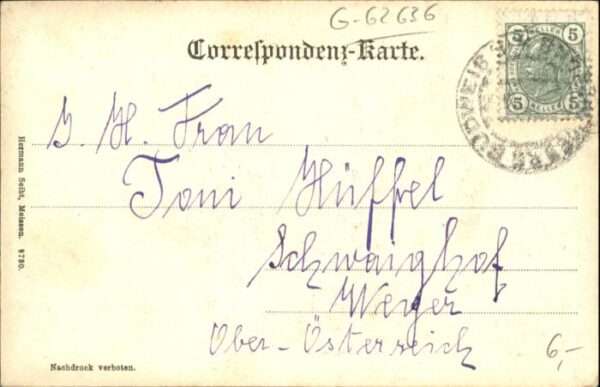 G-62636
Correspondenz-Karte.
5 HELLER 5
BUDWEIS
I. H. Frau
Toni Hüffel
Schwaighof
Weyer
Ober-Österreich
6,-
Hermann Seibt, Meissen. 8780.
Nachdruck verboten.